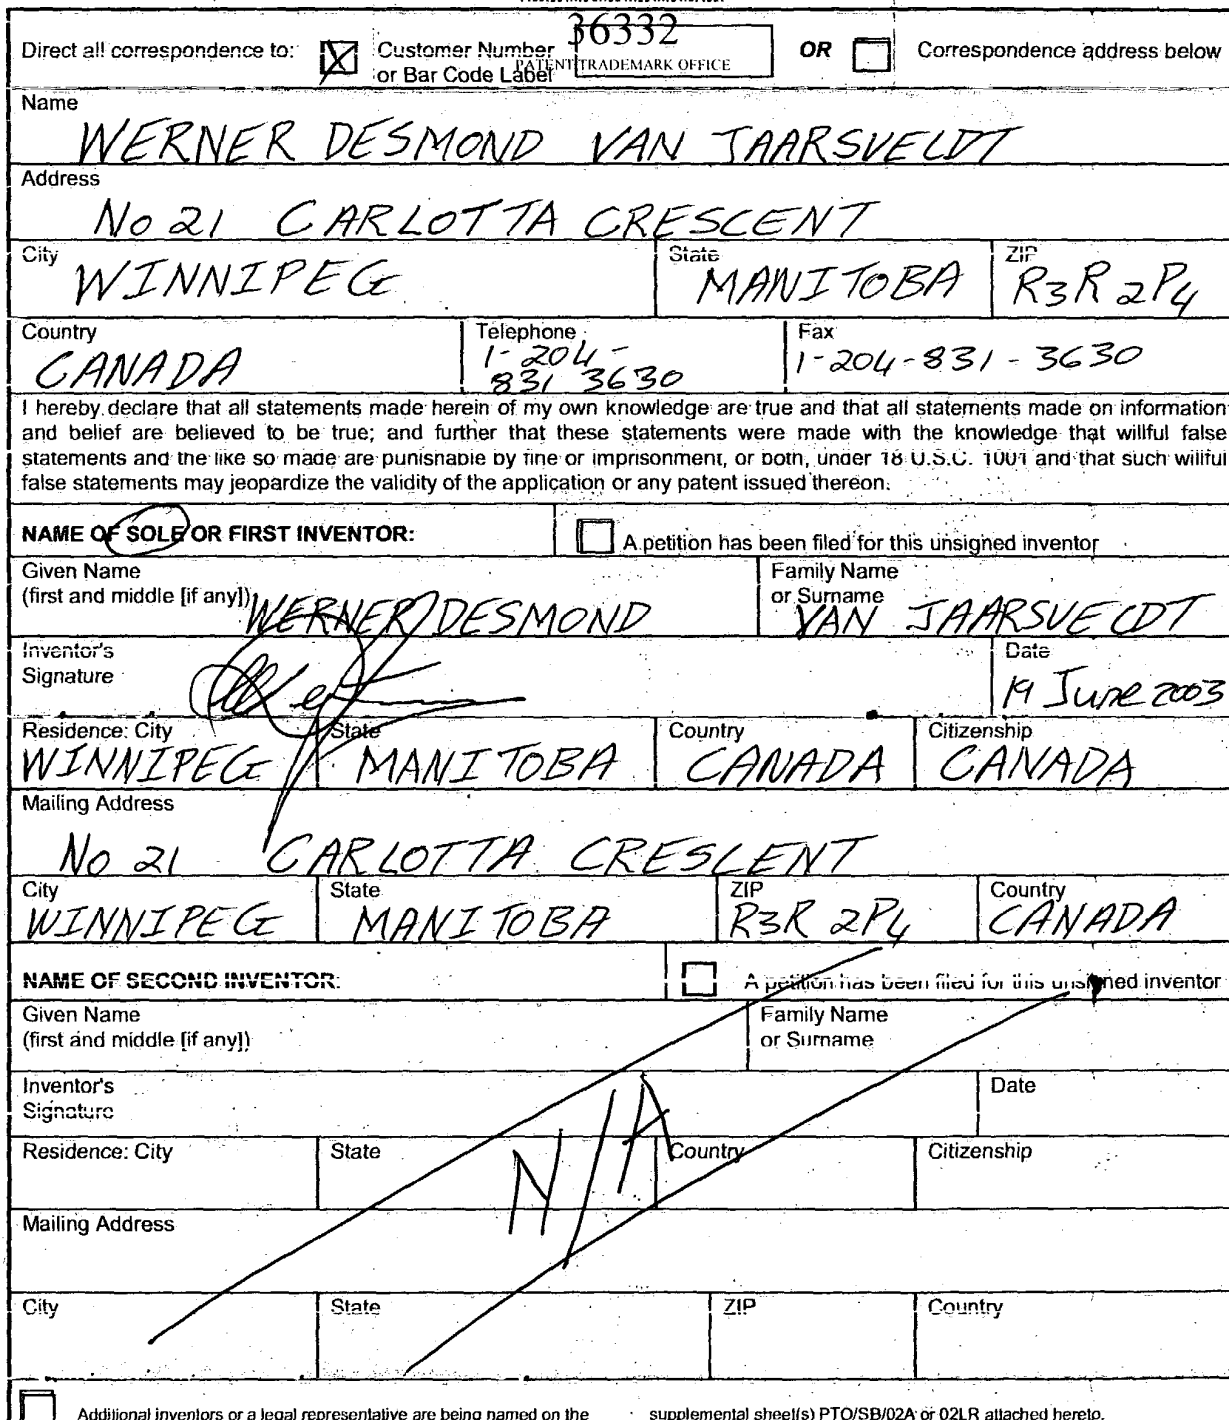 36332
Direct all correspondence to: Customer Number OR Correspondence address below
or Bar Code Label PATENT TRADEMARK OFFICE
Name
WERNER DESMOND VAN JAARSVELDT
Address
No 21 CARLOTTA CRESCENT
City State ZIP
WINNIPEG MANITOBA R3R 2P4
Country Telephone Fax
CANADA 1-204-831 3630 1-204-831-3630
I hereby declare that all statements made herein of my own knowledge are true and that all statements made on information
and belief are believed to be true; and further that these statements were made with the knowledge that willful false
statements and the like so made are punishable by fine or imprisonment, or both, under 18 U.S.C. 1001 and that such willful
false statements may jeopardize the validity of the application or any patent issued thereon.
NAME OF SOLE OR FIRST INVENTOR: A petition has been filed for this unsigned inventor
Given Name Family Name
(first and middle [if any]) or Surname
WERNER DESMOND VAN JAARSVELDT
Inventor's Date
Signature 19 June 2003
Residence: City State Country Citizenship
WINNIPEG MANITOBA CANADA CANADA
Mailing Address
No 21 CARLOTTA CRESCENT
City State ZIP Country
WINNIPEG MANITOBA R3R 2P4 CANADA
NAME OF SECOND INVENTOR: A petition has been filed for this unsigned inventor
Given Name Family Name
(first and middle [if any]) or Surname
Inventor's Date
Signature
N/A
Residence: City State Country Citizenship
Mailing Address
City State ZIP Country
Additional inventors or a legal representative are being named on the supplemental sheet(s) PTO/SB/02A or 02LR attached hereto.